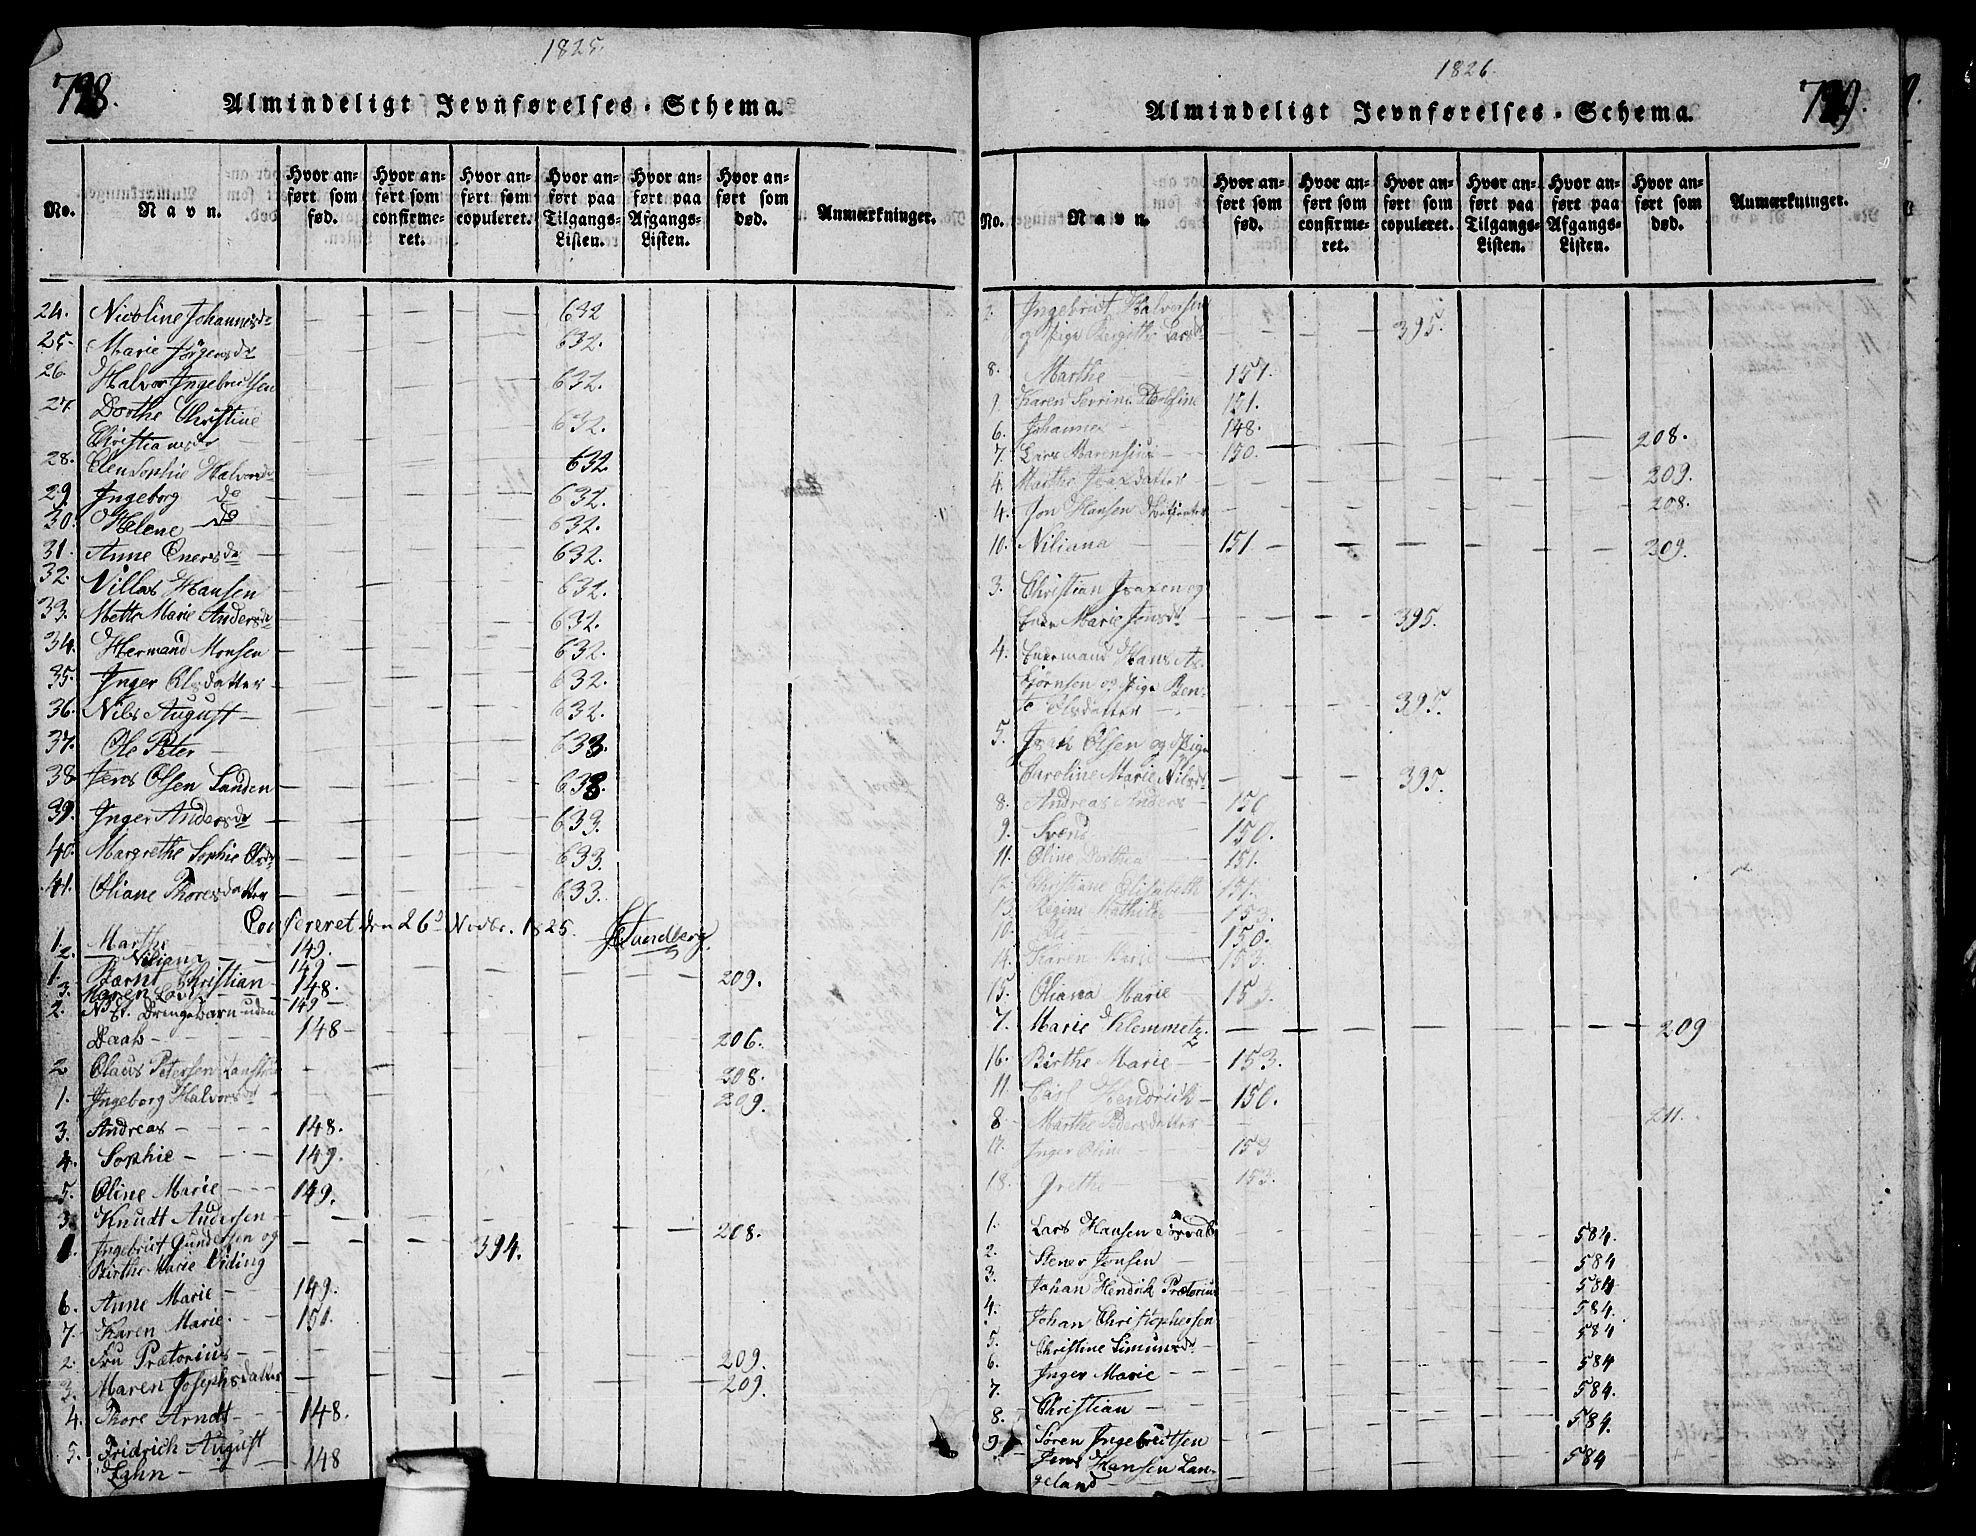 1825.
798.
Almindeligt Jevnførelses-Schema.
No. Navn. Hvor anført som fød. Hvor anført som confirmeret. Hvor anført som copuleret. Hvor anført paa Tilgangs-Listen. Hvor anført paa Afgangs-Listen. Hvor anført som død. Anmærkninger.
24. Nicoline Johannesdr 632
25. Marie Jörgensdr 632.
26. Halvor Ingebrutsen 632.
27. Dorthe Christine
Christiansdr 632.
28. Elen Sophie Halvorsdr 632
29. Ingeborg do 632.
30. Helene do 632.
31. Anne Enersdr 632.
32. Villas Hansen 632.
33. Mette Marie Andersdr 632.
34. Hermand Monsen 632.
35. Inger Olsdatter 632.
36. Nils August 632.
37. Ole Peter 633.
38. Jens Olsen Landen 633.
39. Inger Andersdr 633.
40. Margrethe Sophie Olsdr 633.
41. Oliane Thoresdatter 633.
Confereret den 26d Novbr. 1825. Sundberg.
1. Marthe 149.
2. Niliana 149
1. Bærnt Christian 148. 209.
3. Maren Lovise 149
2. Et Drengebarn uden
Daab 148 206.
2 Claus Petersen 208.
1. Ingeborg Halvorsdr 209.
3. Andreas 148.
4. Sophie 149.
5. Oline Marie 149.
3. Knudt Andersen 208.
1. Ingebrut Gundersen og
Birthe Marie Eiding 394.
6. Anne Marie 149.
7. Karen Marie 151.
2. Fru Prætorius 209.
3. Maren Josephsdatter 209.
4. Thore Arndt 148.
5. Fridrich August
Zahn 148
1826.
799.
Almindeligt Jevnførelses-Schema.
No. Navn. Hvor anført som fød. Hvor anført som confirmeret. Hvor anført som copuleret. Hvor anført paa Tilgangs-Listen. Hvor anført paa Afgangs-Listen. Hvor anført som død. Anmærkninger.
2. Ingebrut Halvorsen
og Pige Bergitte Larsdr 395.
8. Marthe 151.
9. Karen Severine 151.
6. Johannes 148. 208.
7. Lars Marensius 150.
4. Marthe Isaxdatter 209.
4. Jon Hansen 208.
10. Niliana 151 309.
3. Christian Isaxen og
Enke Marie Jonsdr 395.
4. Enkemand Hans As-
bjørnsen og Pige Ben-
te Olsdatter 395.
5. Isak Olsen og Pige
Caroline Marie Nilsdr 395.
8. Andreas Anders 150
9. Svend 150.
11. Oline Dorthea 151.
12. Christiane Elisabeth 151.
13. Regine Mathilde 153.
10. Ole 150.
14. Karen Marie 153.
15. Oliana Marie 153.
7. Marie Klemmetz. 209
16. Birthe Marie 153.
11. Carl Hendrick 150.
8. Marthe Pedersdatter 211.
17. Inger Oline 153
18. Grethe 153.
1. Lars Hansen 584.
2. Stener Jensen 584
3. Johan Hendrik Prætorius 584
4. Johan Christophersen 584.
5. Christine Simunsdr 584
6. Inger Marie 584
7. Christian 584.
8. Søren Ingebrutsen 584.
9. Jens Hansen Lan-
geland 584